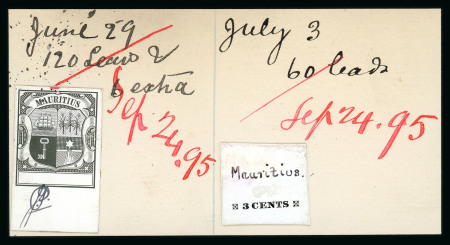 June 29
120 Leads &
6 extra
Sep 24.95
MAURITIUS
July 3
60 leads
Sep 24.95
Mauritius.
3 CENTS